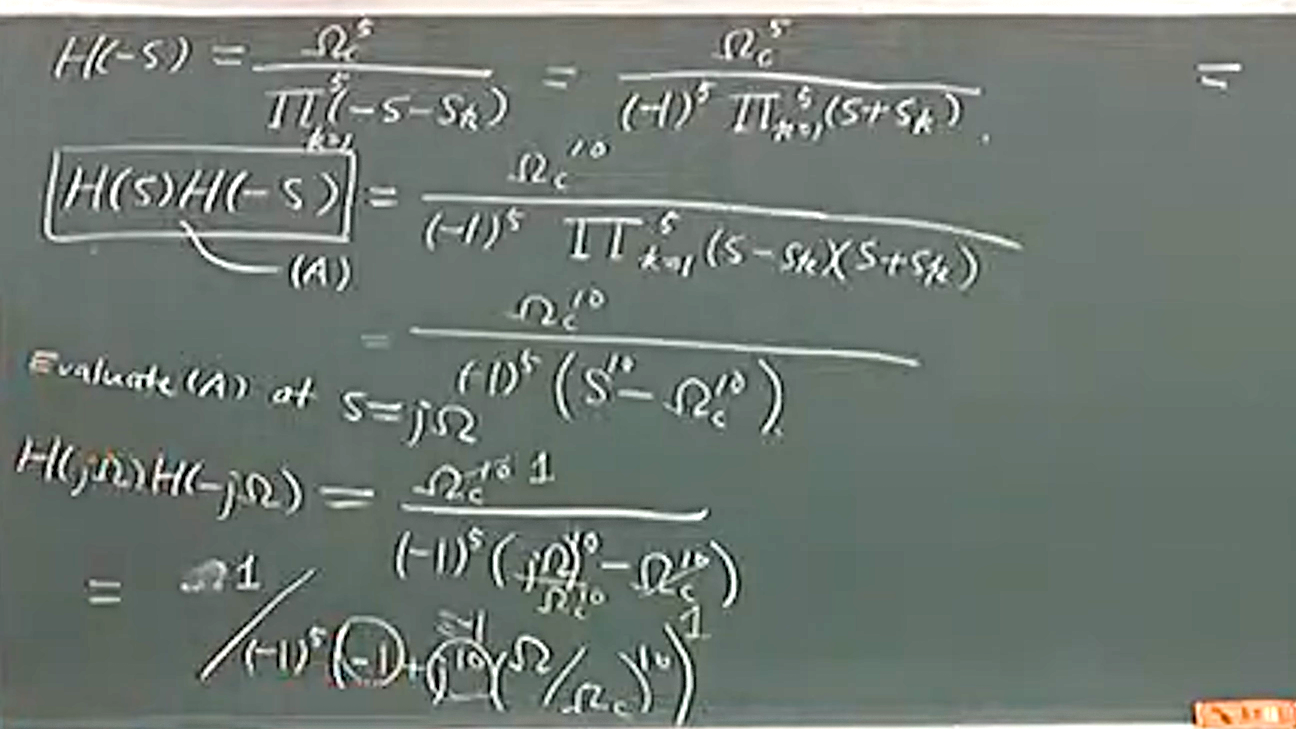 H(-s) = Ωc^5 / ∏_{k=1}^5 (-s-s_k) = Ωc^5 / (-1)^5 ∏_{k=1}^5 (s+s_k). =
H(s)H(-s) = Ωc^10 / (-1)^5 ∏_{k=1}^5 (s-s_k)(s+s_k)
(A)
= Ωc^10 / (-1)^5 (s^10 - Ωc^10)
Evaluate (A) at s=jΩ
H(jΩ)H(-jΩ) = Ωc^10 1 / (-1)^5 ((jΩ)^10/Ωc^10 - Ωc^10) 1
= 1 / (-1)^5 (-1 + j^10 (Ω/Ωc)^10)
=-1